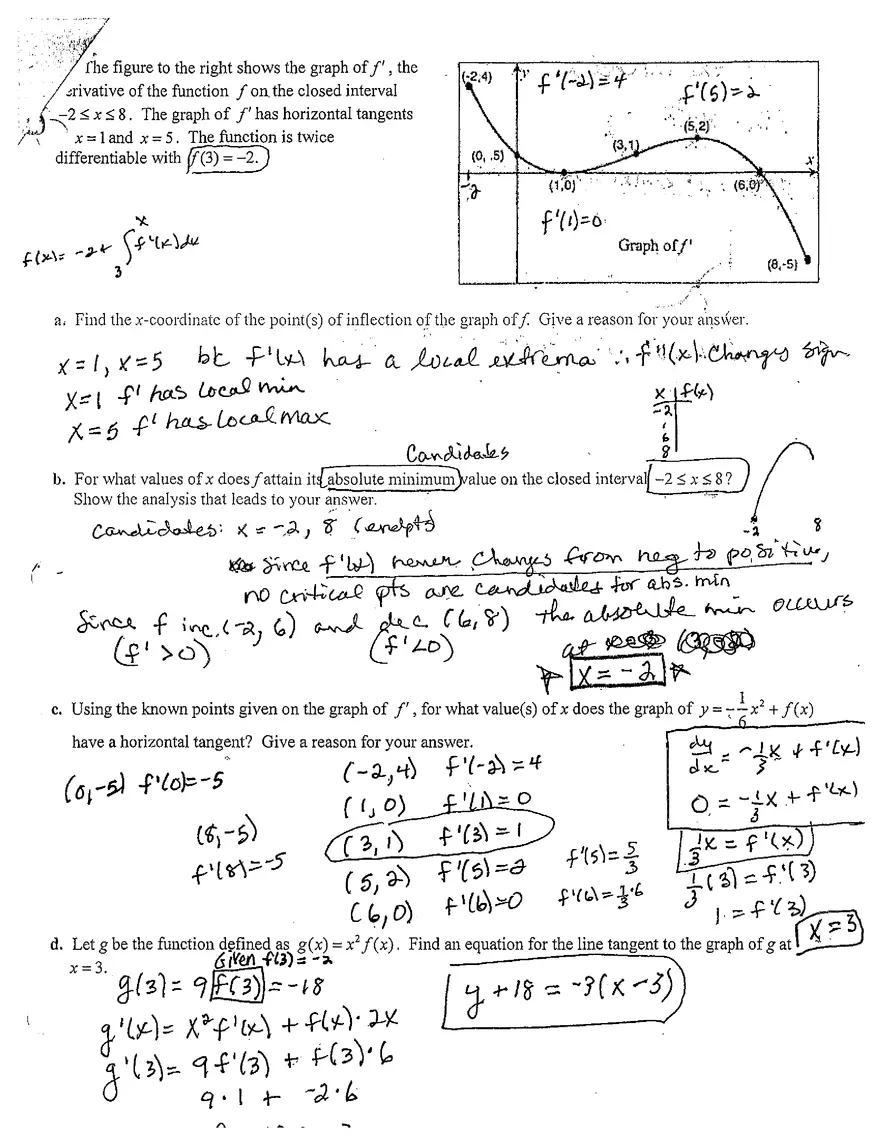 The figure to the right shows the graph of f', the
erivative of the function f on the closed interval
-2 ≤ x ≤ 8. The graph of f' has horizontal tangents
x = 1 and x = 5. The function is twice
differentiable with f(3) = -2.
f(x) = -2 + ∫₃ˣ f'(x)dx
(-2,4) y f'(-2)=4 f'(5)=2
(5,2)
(3,1)
(0, .5) x
-2 (1,0) (6,0)
f'(1)=0
Graph of f'
(8,-5)
a. Find the x-coordinate of the point(s) of inflection of the graph of f. Give a reason for your answer.
x = 1, x = 5 bc f'(x) has a local extrema ∴ f''(x) changes sign
x=1 f' has local min
x = 5 f' has local max
x f(x)
-2
1
6
8
Candidates
b. For what values of x does f attain its absolute minimum value on the closed interval -2 ≤ x ≤ 8?
Show the analysis that leads to your answer.
-2 8
Candidates: x = -2, 8 (endpts)
Since f'(x) never changes from neg to positive,
no critical pts are candidates for abs. min
Since f inc. (-2, 6) and dec (6, 8) the absolute min occurs
(f' >0) (f' <0) at
x = -2
c. Using the known points given on the graph of f', for what value(s) of x does the graph of y = -1/6 x² + f(x)
have a horizontal tangent? Give a reason for your answer.
dy/dx = -1/3 x + f'(x)
0 = -1/3 x + f'(x)
1/3 x = f'(x)
1/3 (3) = f'(3)
1 = f'(3)
x = 3
(0,-5) f'(0)=-5
(8,-5)
f'(8)=-5
(-2,4) f'(-2)=4
(1,0) f'(1)=0
(3,1) f'(3)=1
(5,2) f'(5)=2 f'(5)=5/3
(6,0) f'(6)=0 f'(6)=1/3·6
d. Let g be the function defined as g(x) = x² f(x). Find an equation for the line tangent to the graph of g at
x = 3.
Given f(3) = -2
g(3) = 9 f(3) = -18
y + 18 = -3(x-3)
g'(x) = x² f'(x) + f(x)·2x
g'(3) = 9 f'(3) + f(3)·6
9·1 + -2·6